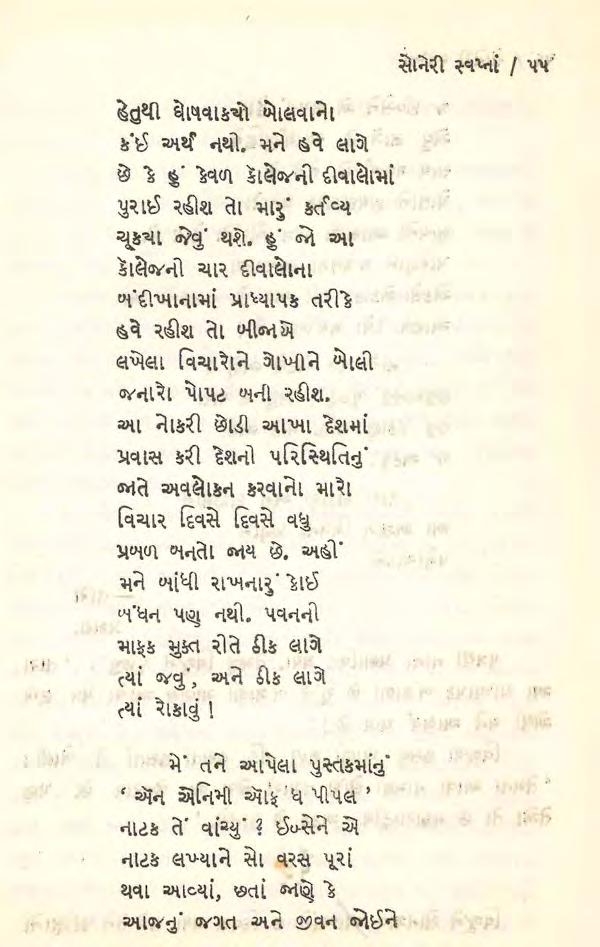 સોનેરી સ્વપ્નાં / ૫૫
હેતુથી ઘોષવાક્યો બોલવાનો
કંઈ અર્થ નથી. મને હવે લાગે
છે કે હું કેવળ કૉલેજની દીવાલોમાં
પુરાઈ રહીશ તો મારું કર્તવ્ય
ચૂક્યા જેવું થશે. હું જો આ
કૉલેજની ચાર દીવાલોના
બંદીખાનામાં પ્રાધ્યાપક તરીકે
હવે રહીશ તો બીજાએ
લખેલા વિચારોને ગોખીને બોલી
જનારો પોપટ બની રહીશ.
આ નોકરી છોડી આખા દેશમાં
પ્રવાસ કરી દેશની પરિસ્થિતિનું
જાતે અવલોકન કરવાનો મારો
વિચાર દિવસે દિવસે વધુ
પ્રબળ બનતો જાય છે. અહીં
મને બાંધી રાખનારું કોઈ
બંધન પણ નથી. પવનની
માફક મુક્ત રીતે ઠીક લાગે
ત્યાં જવું, અને ઠીક લાગે
ત્યાં રોકાવું !
મેં તને આપેલા પુસ્તકમાંનું
‘ઍન એનિમી ઑફ ધ પીપલ’
નાટક તેં વાંચ્યું ? ઈબ્સેને એ
નાટક લખ્યાને સો વરસ પૂરાં
થવા આવ્યાં, છતાં જાણે કે
આજનું જગત અને જીવન જોઈને